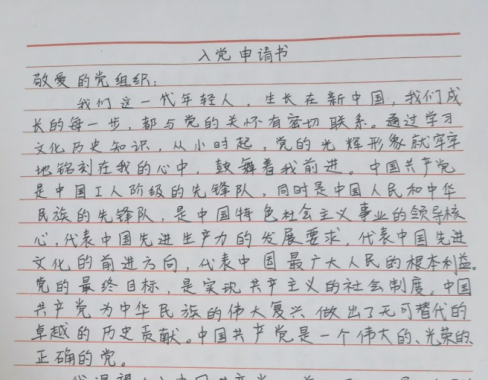 入党申请书
敬爱的党组织:
我们这一代年轻人,生长在新中国,我们成
长的每一步,都与党的关怀有密切联系。通过学习
文化历史知识,从小时起,党的光辉形象就牢牢
地铭刻在我的心中,鼓舞着我前进。中国共产党
是中国工人阶级的先锋队,同时是中国人民和中华
民族的先锋队,是中国特色社会主义事业的领导核
心,代表中国先进生产力的发展要求,代表中国先进
文化的前进方向,代表中国最广大人民的根本利益。
党的最终目标,是实现共产主义的社会制度,中国
共产党为中华民族的伟大复兴做出了无可替代的
卓越的历史贡献。中国共产党是一个伟大的、光荣的、
正确的党。